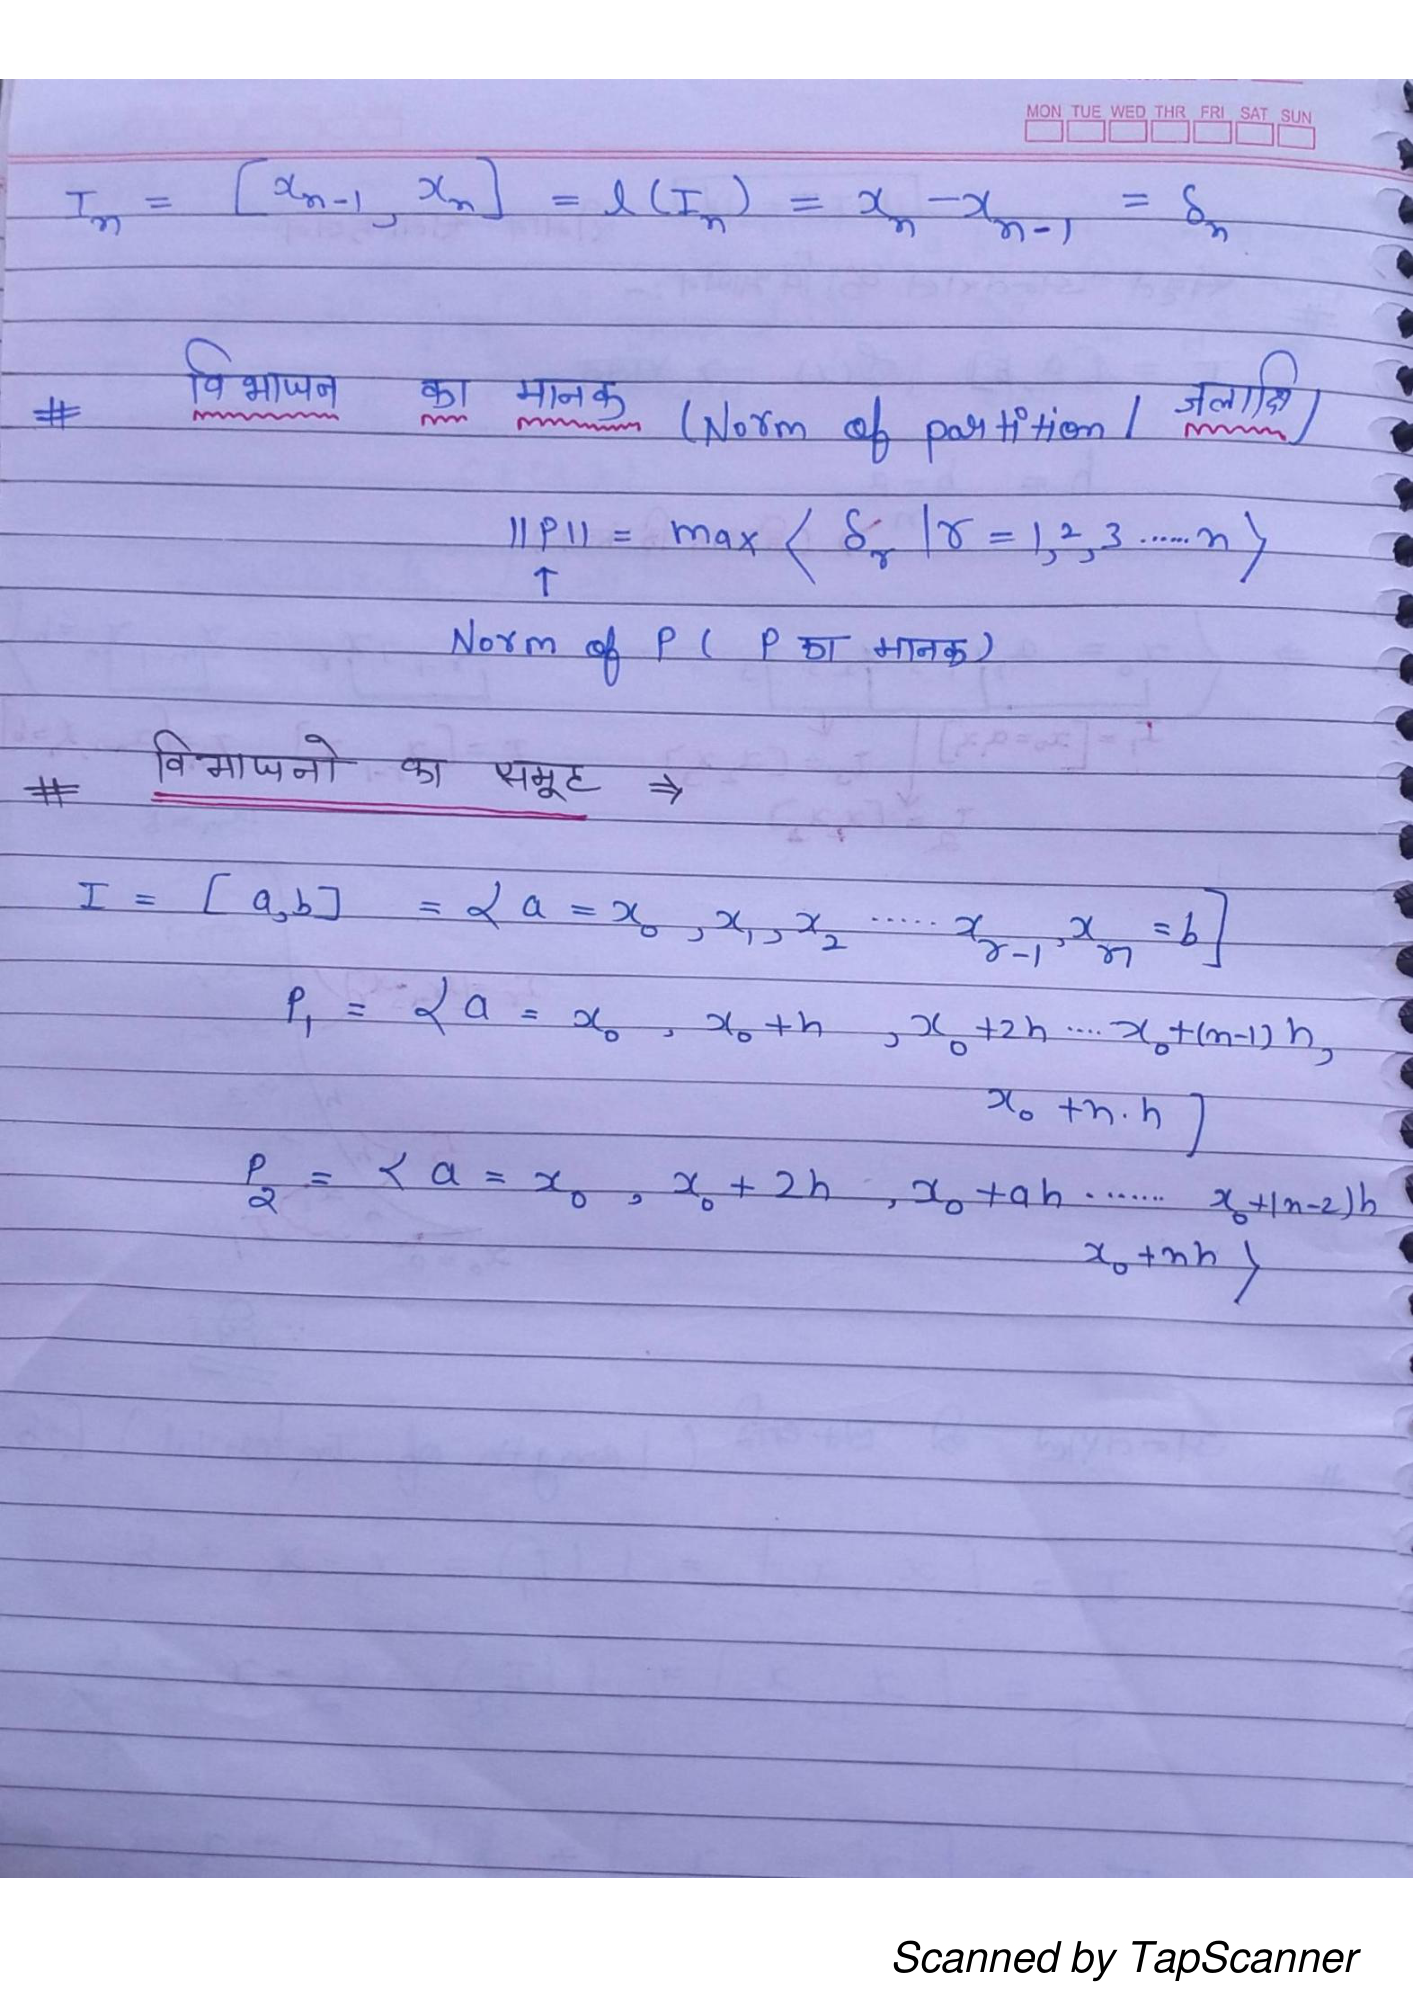 MON TUE WED THR FRI SAT SUN
Iₙ = [xₙ₋₁, xₙ] = l(Iₙ) = xₙ - xₙ₋₁ = δₙ
# विभाजन का मानक (Norm of partition / जलाक्षि)
||P|| = max < δᵣ | r = 1,2,3 ...... n >
↑
Norm of P ( P का मानक)
# विभाजनो का समूह ⇒
I = [a,b] = < a = x₀, x₁, x₂ ..... xᵣ₋₁, xₙ = b]
P₁ = < a = x₀, x₀+h, x₀+2h .... x₀+(n-1)h,
x₀ + n.h ]
P₂ = < a = x₀, x₀ + 2h, x₀+ah ....... x₀+(n-2)h
x₀+nh >
Scanned by TapScanner